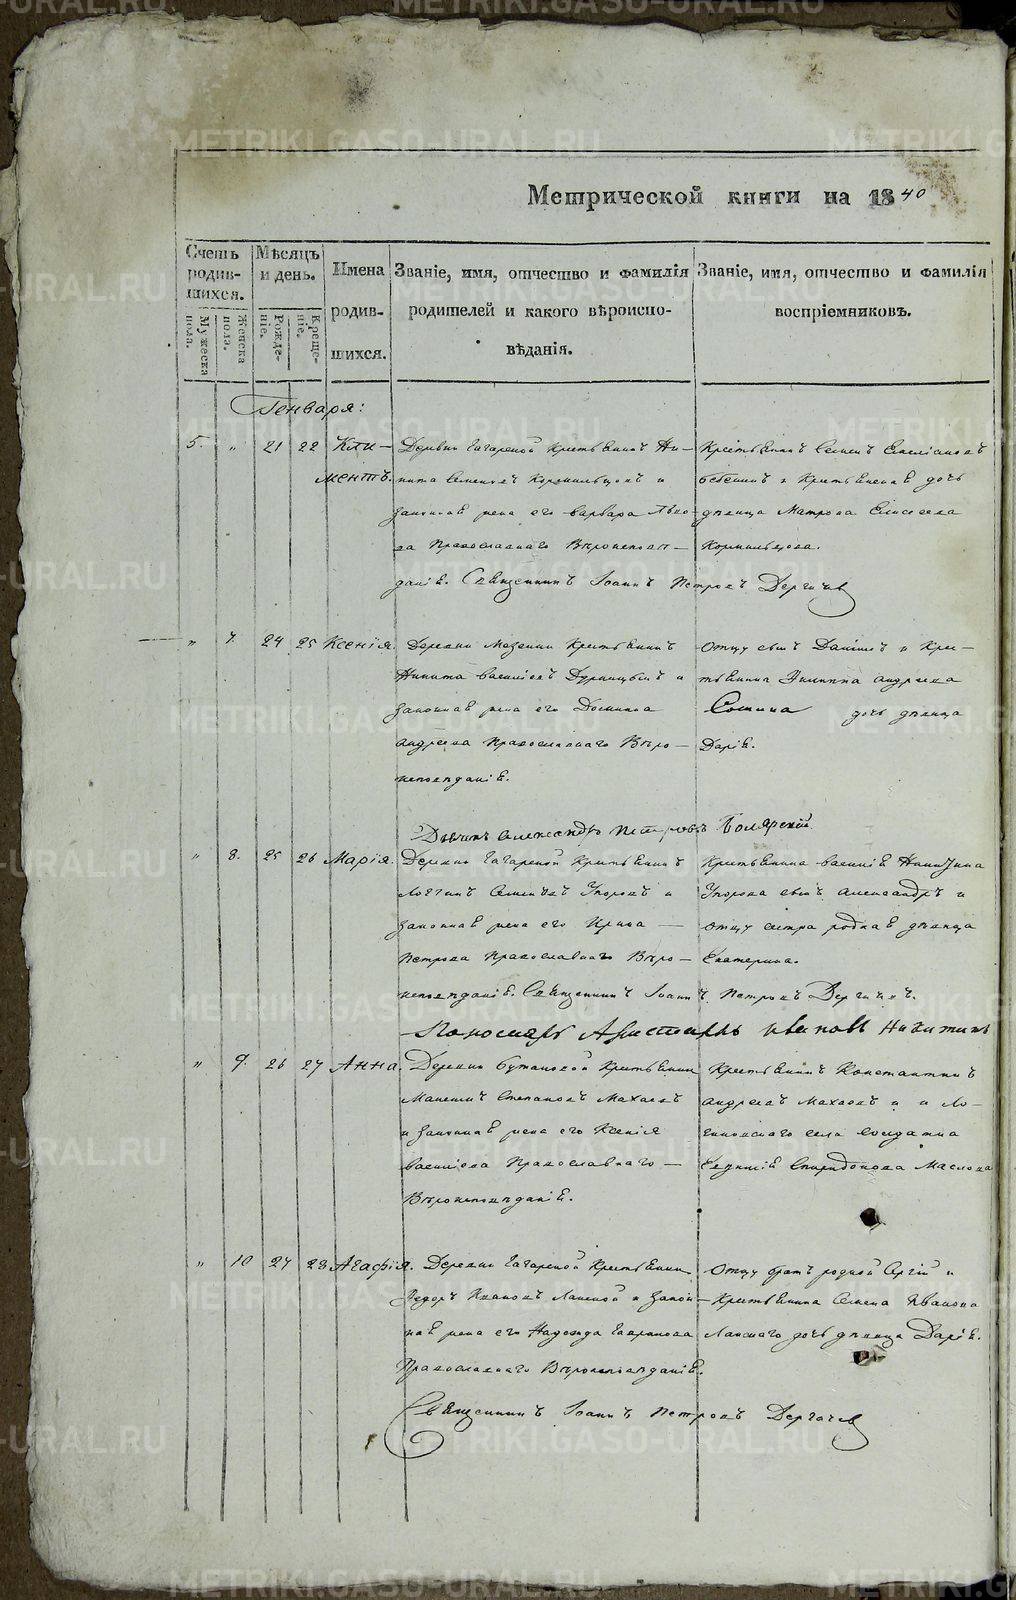 Метрической книги на 1840
Счетъ родив-шихся.
Мужеска пола.
Женска пола.
Мѣсяцъ и день.
Рожде-ніе.
Креще-ніе.
Имена родив-шихся.
Званіе, имя, отчество и фамилія
родителей и какого вѣроиспо-
вѣданія.
Званіе, имя, отчество и фамилія
воспріемниковъ.
Генваря:
5. " 21 22 Кли-
ментъ.
Деревни Гагарской Крестьянинъ Ни-
кита Семеновъ и
законная жена его Варвара
Православнаго Вѣроисповѣ-
данія. Священникъ Іоаннъ Петровъ Дергачев
Крестьянинъ Семенъ
и Крестьянская дочь
дѣвица Матрона Елисеева
" 7. 24 25 Ксенія.
Деревни Мезенки Крестьянинъ
Никита Василіевъ и
законная жена его Домника
Андреева Православнаго Вѣро-
исповѣданія.
Отцу сынъ Даніилъ и Крес-
тьянина Филиппа Андреева
дочь дѣвица
Дарія.
Дьячекъ Александръ Петровъ Боярскій
" 8. 25 26 Марія.
Деревни Гагарской Крестьянинъ
Логгинъ Семеновъ Упоровъ и
законная жена его Ирина
Петрова Православнаго Вѣро-
исповѣданія. Священникъ Іоаннъ Петровъ Дергачевъ.
Крестьянина Василія Никитина
Упорова сынъ Александръ и
отцу сестра родная дѣвица
Екатерина.
Пономарь Аристархъ Ивановъ Никитинъ
" 9. 26 27 Анна.
Деревни Крестьянинъ
Степановъ Махаевъ
и законная жена его Ксенія
Василіева Православнаго
Вѣроисповѣданія.
Крестьянинъ Константинъ
Андреевъ Махаевъ и
села солдатка
Спиридонова Маслова
" 10 27 28 Агафія.
Деревни Гагарской Крестьянинъ
Ѳедоръ Ивановъ и закон-
ная жена его Надежда Гаврилова
Православнаго Вѣроисповѣданія.
Отцу братъ родной Сергій и
Крестьянина Семена Иванова
дочь дѣвица Дарія.
Священникъ Іоаннъ Петровъ Дергачев
METRIKI.GASO-URAL.RU